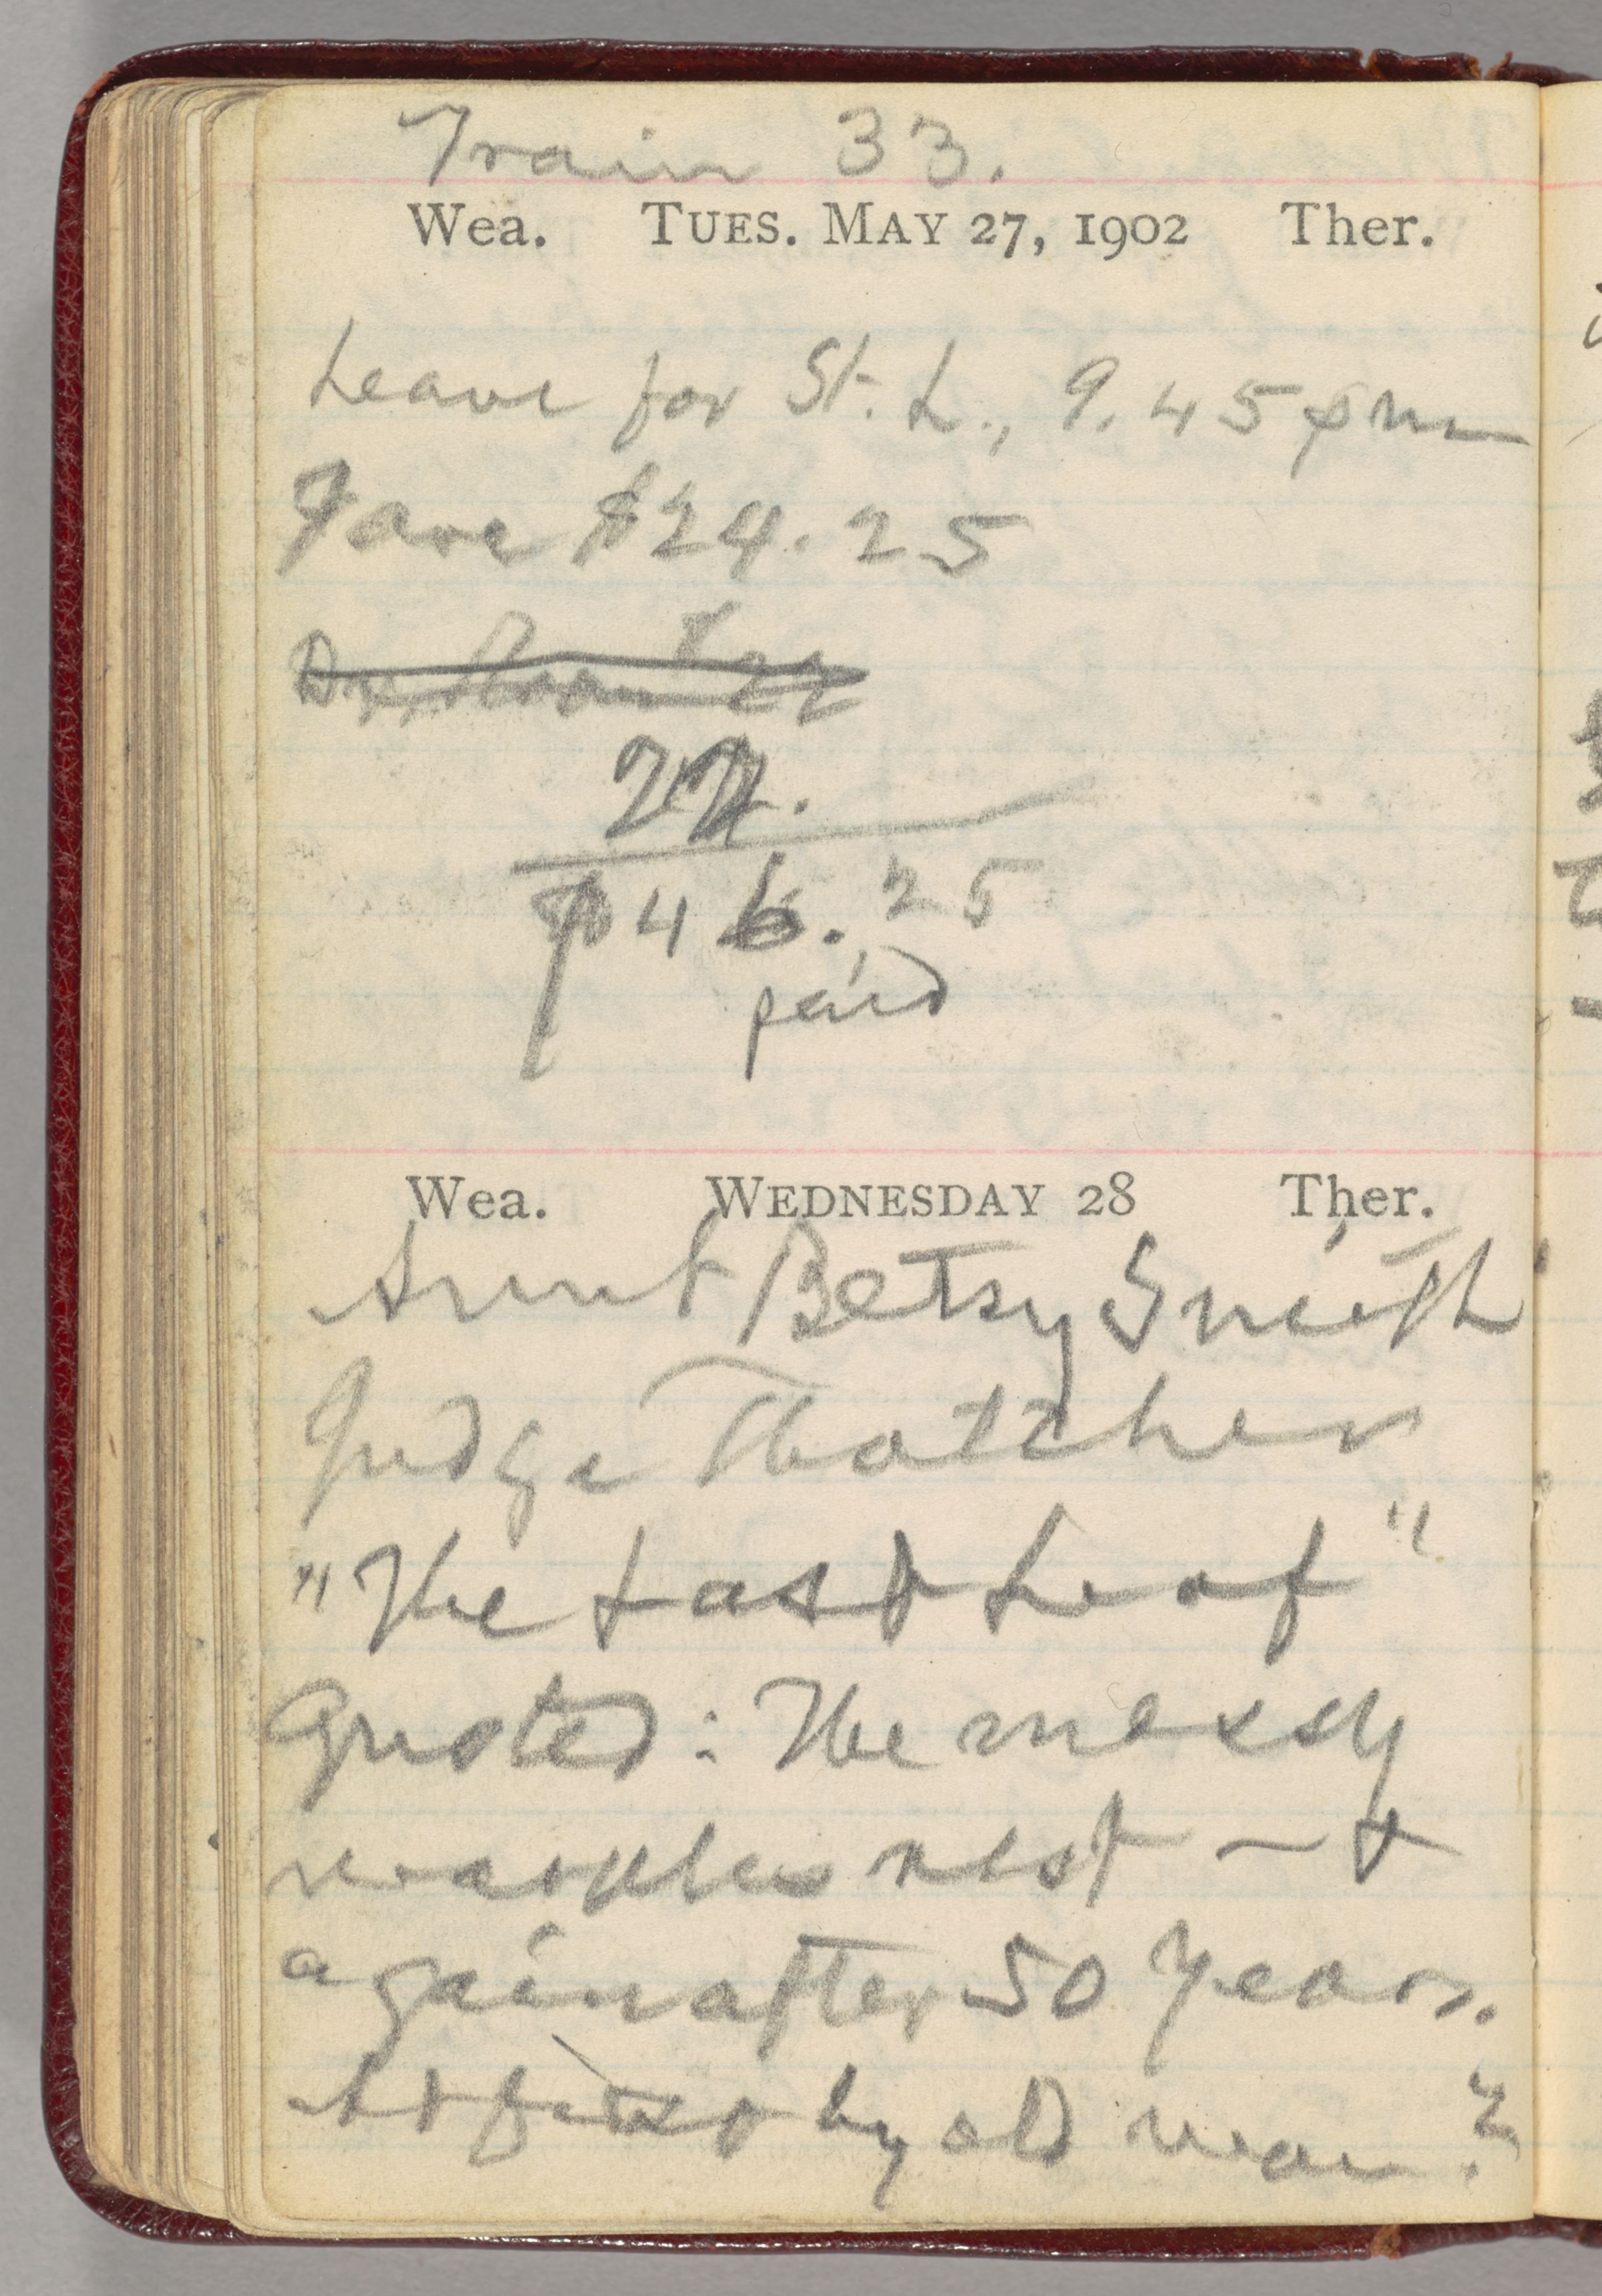 Train 33.
Wea. TUES. MAY 27, 1902 Ther.
Leave for St. L., 9.45 pm
Fare $24.25
22.
$46.25
paid
Wea. WEDNESDAY 28 Ther.
Aunt Betsy Smith
Judge Thatcher
"The Last Leaf"
Quoted: The mossy
marbles rest — &
again after 50 years.
At first by old man?